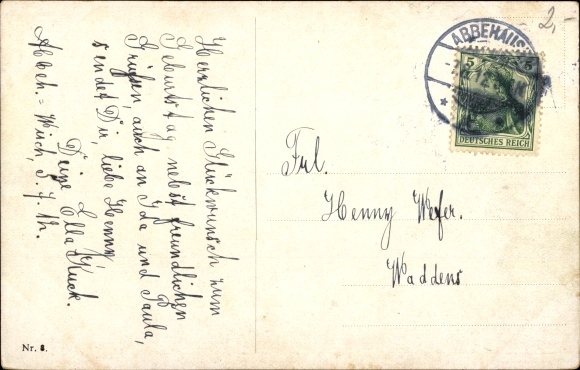 Herzlichen Glückwunsch zum
Geburtstag nebst freundlichen
Grüßen, auch an Ida und Paula,
sendet Dir, liebe Henny,
Deine Ella Kuck.
Abbeh. - Wisch, 3. 7. 12.
Nr. 8.
2,-
ABBEHAUSEN
5 5
DEUTSCHES REICH
Frl.
Henny Wefer.
Waddens